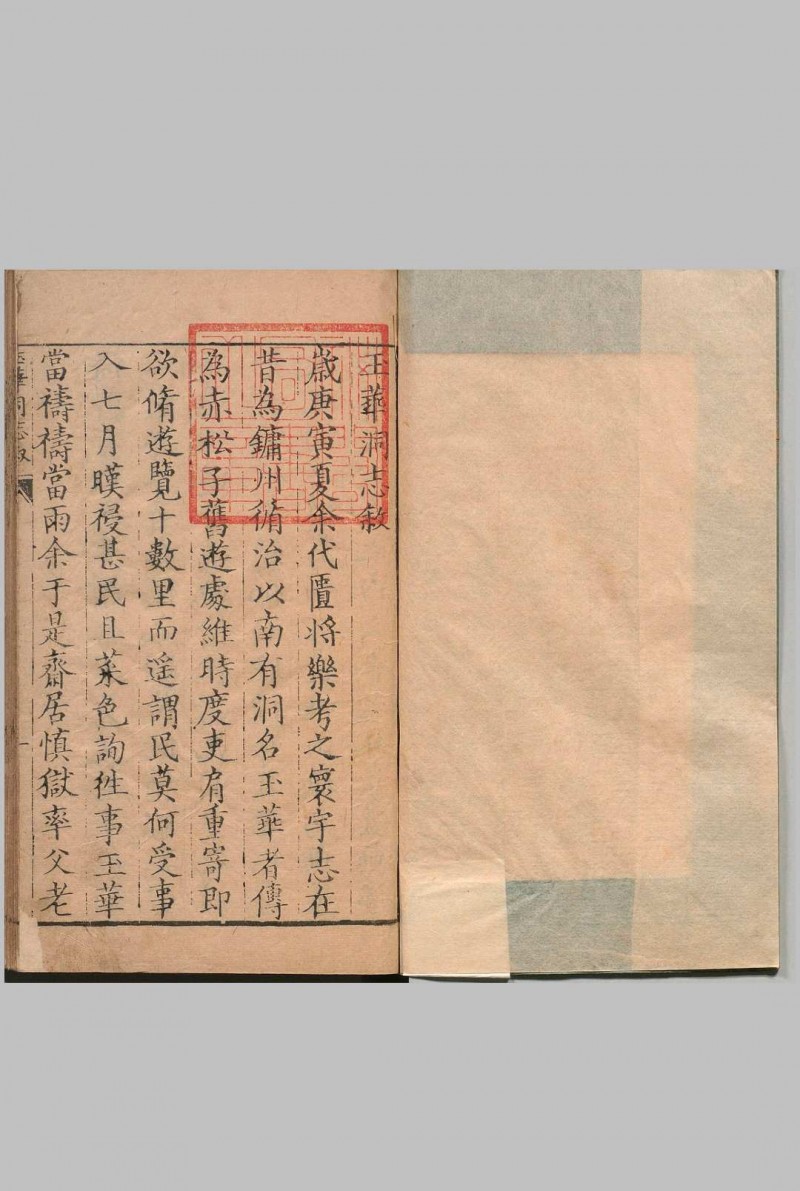 玉華洞志敘
歲庚寅夏余代匱將樂考之寰宇志在
昔為鏞州循治以南有洞名玉華者傳
為赤松子舊遊處維時度吏肩重寄即
欲脩遊覽十數里而遥謂民莫何受事
入七月暵祲甚民且菜色詢徃事玉華
當禱禱當雨余于是齋居慎獄率父老
玉華洞志敘
一